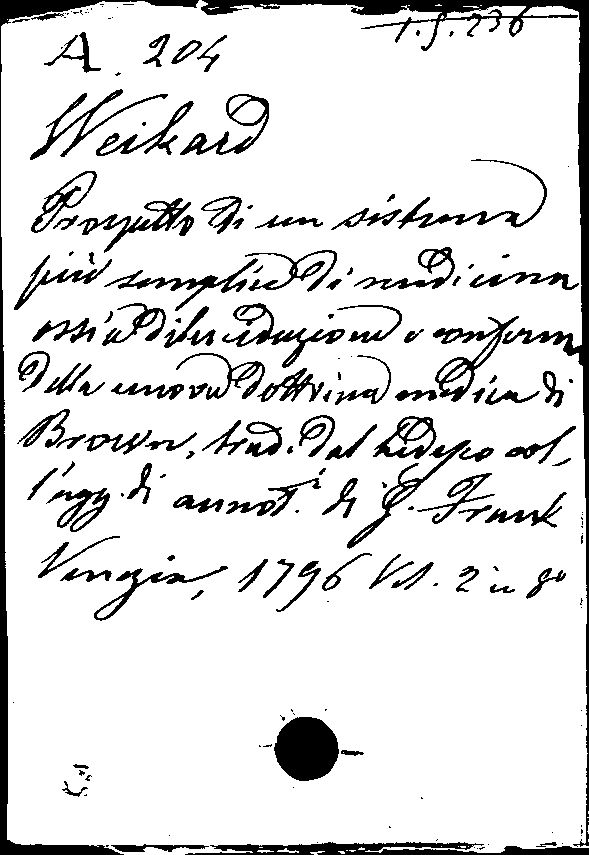 1.5.236
A. 204
Weikard
Prospetto di un sistema
più semplice di medicina
ossia Dilucidazione e conferma
della nuova dottrina medica di
Brown, trad. dal tedesco col,
l'agg. di annot.i di G. Frank
Venezia, 1796 Vol. 2 in 8o